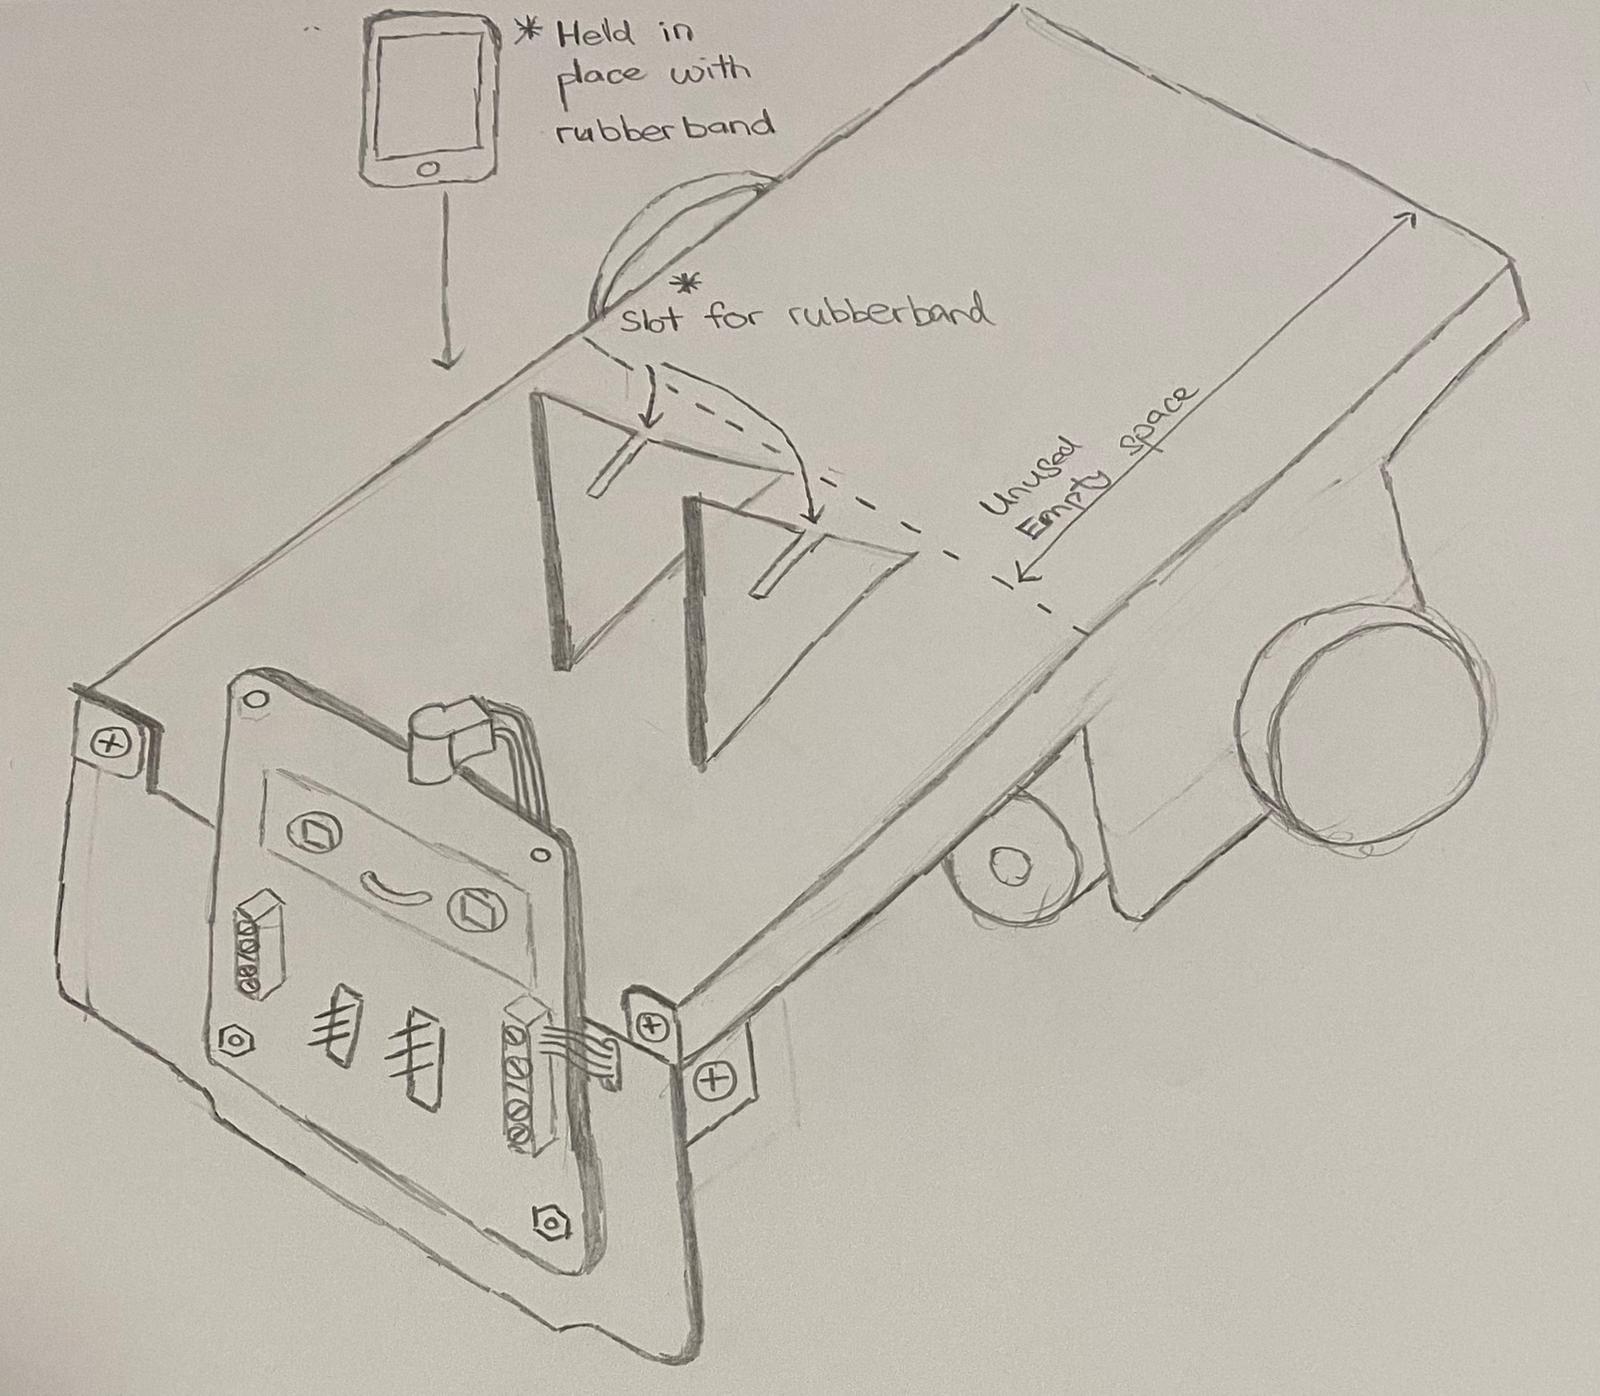 * Held in
place with
rubberband
*
Slot for rubberband
Unused
Empty space